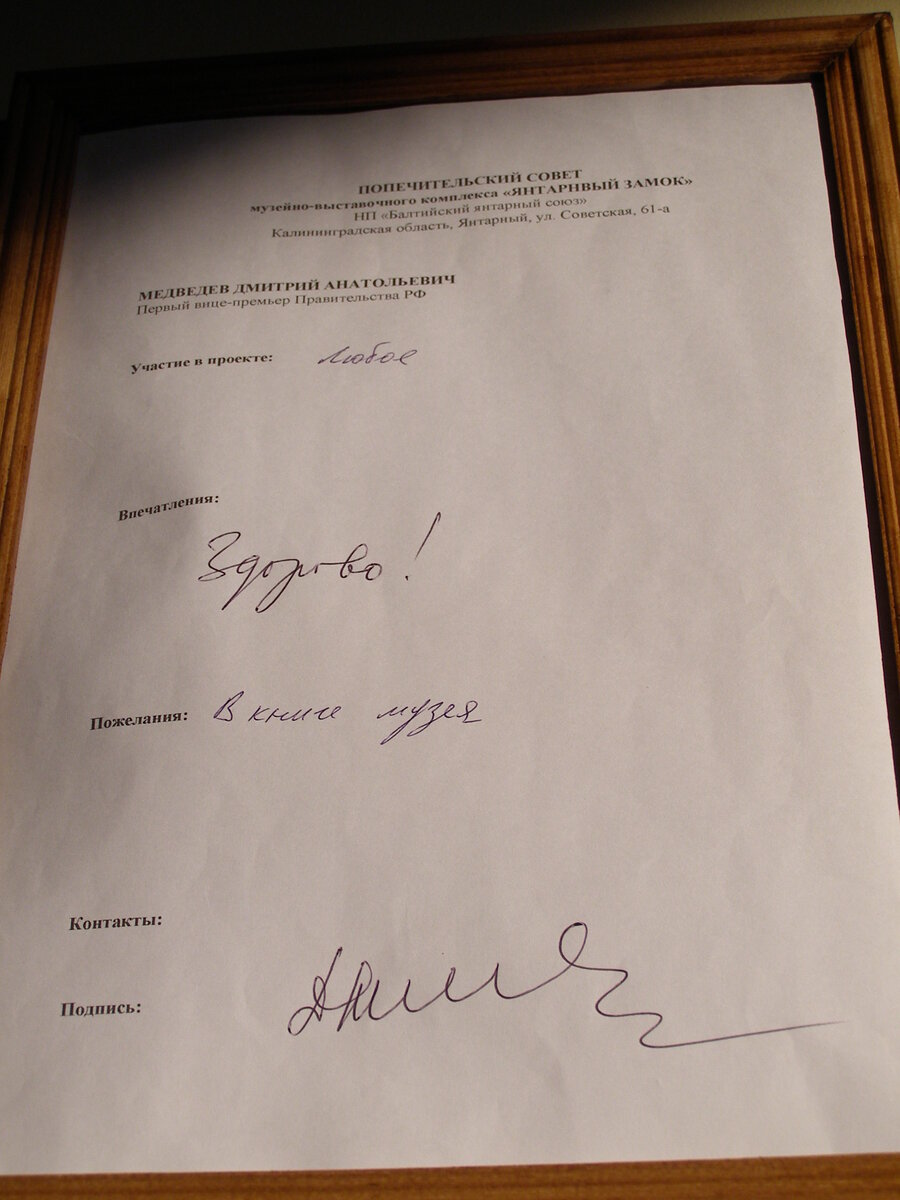 ПОПЕЧИТЕЛЬСКИЙ СОВЕТ
музейно-выставочного комплекса «ЯНТАРНВЫЙ ЗАМОК»
НП «Балтийский янтарный союз»
Калининградская область, Янтарный, ул. Советская, 61-а
МЕДВЕДЕВ ДМИТРИЙ АНАТОЛЬЕВИЧ
Первый вице-премьер Правительства РФ
Участие в проекте: Любое
Впечатления:
Здорово!
Пожелания: В книге музея
Контакты:
Подпись: